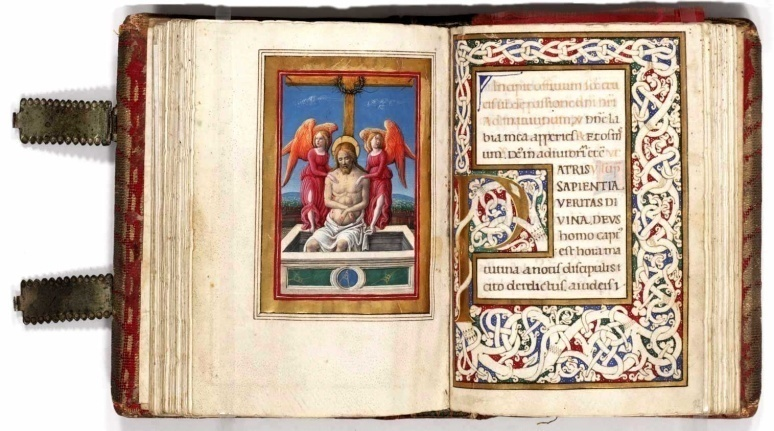 Incipit officium
cis et de passione dni nri
Ad matutinum Dñe la
bia mea aperies Et os
um. in
PATRIS
SAPIENTIA.
VERITAS DI
VINA. DEVS
homo capt⁹
est hora ma
tutina a notis discipulis
cito derelictus, a iudeis